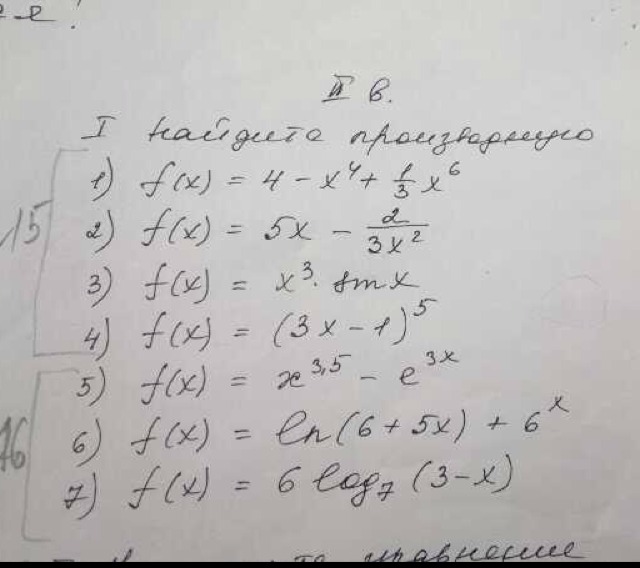 II в.
I Найдите производную
1) f(x) = 4 - x⁴ + 1/3 x⁶
2) f(x) = 5x - 2/(3x²)
3) f(x) = x³ · sin x
4) f(x) = (3x - 1)⁵
15
5) f(x) = x^3,5 - e^3x
6) f(x) = ln(6 + 5x) + 6^x
7) f(x) = 6 log₇ (3 - x)
16
уравнение